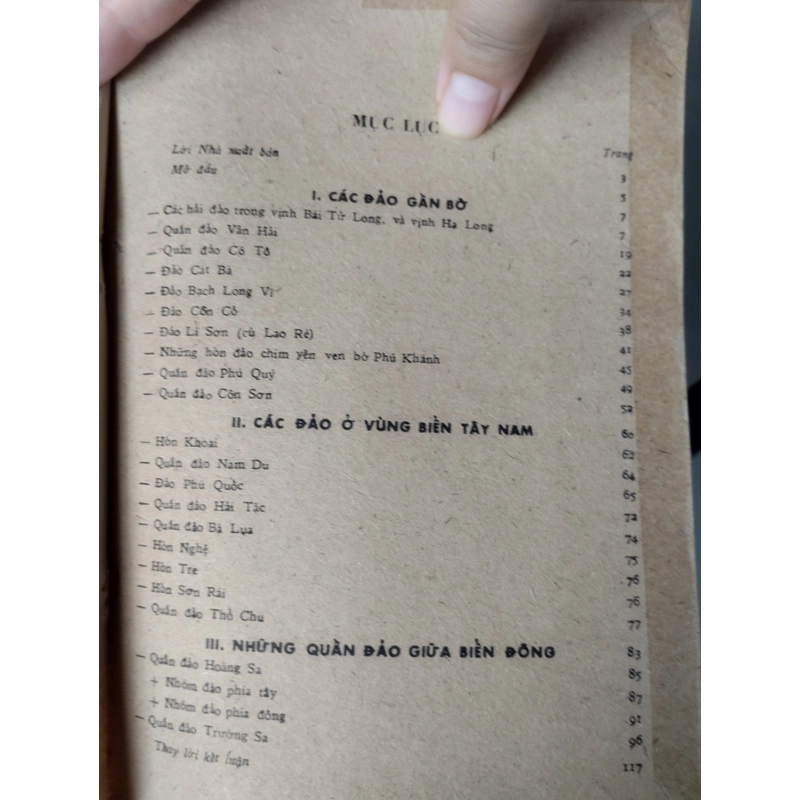 MỤC LỤC
Trang
Lời Nhà xuất bản 3
Mở đầu 5
I. CÁC ĐẢO GẦN BỜ 7
— Các hải đảo trong vịnh Bái Tử Long, và vịnh Hạ Long 7
— Quần đảo Vân Hải 19
— Quần đảo Cô Tô 22
— Đảo Cát Bà 27
— Đảo Bạch Long Vĩ 34
— Đảo Cồn Cỏ 38
— Đảo Lí Sơn (cù Lao Ré) 41
— Những hòn đảo chim yến ven bờ Phú Khánh 45
— Quần đảo Phú Quý 49
— Quần đảo Côn Sơn 52
II. CÁC ĐẢO Ở VÙNG BIỂN TÂY NAM 60
— Hòn Khoai 62
— Quần đảo Nam Du 64
— Đảo Phú Quốc 65
— Quần đảo Hải Tặc 72
— Quần đảo Bà Lụa 74
— Hòn Nghệ 75
— Hòn Tre 76
— Hòn Sơn Rái 76
— Quần đảo Thổ Chu 77
III. NHỮNG QUẦN ĐẢO GIỮA BIỂN ĐÔNG 83
— Quần đảo Hoàng Sa 85
+ Nhóm đảo phía tây 87
+ Nhóm đảo phía đông 91
— Quần đảo Trường Sa 96
Thay lời kết luận 117